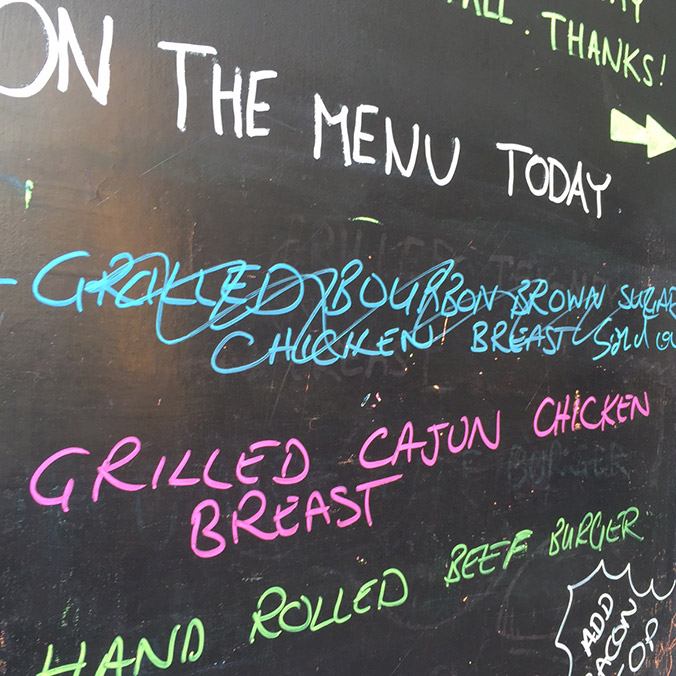 . THANKS!
ON THE MENU TODAY
- GRILLED BOURBON BROWN SUGAR
CHICKEN BREAST Sold
GRILLED CAJUN CHICKEN
BREAST
HAND ROLLED BEEF BURGER
ADD
BACON